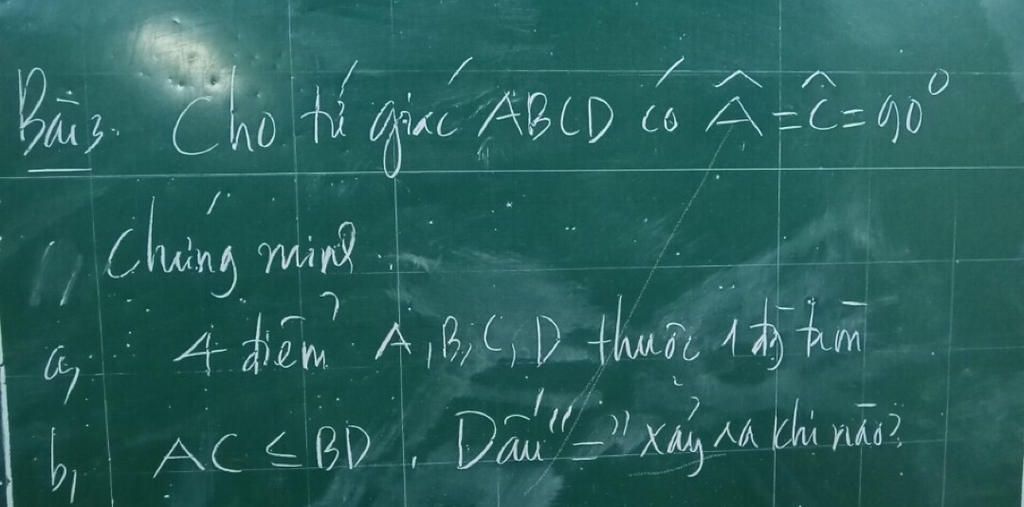 Bài 3. Cho tứ giác ABCD có Â = Ĉ = 90⁰
Chứng minh
a, 4 điểm A, B, C, D thuộc 1 đg tròn
b, AC ≤ BD. Dấu "=" xảy ra khi nào?